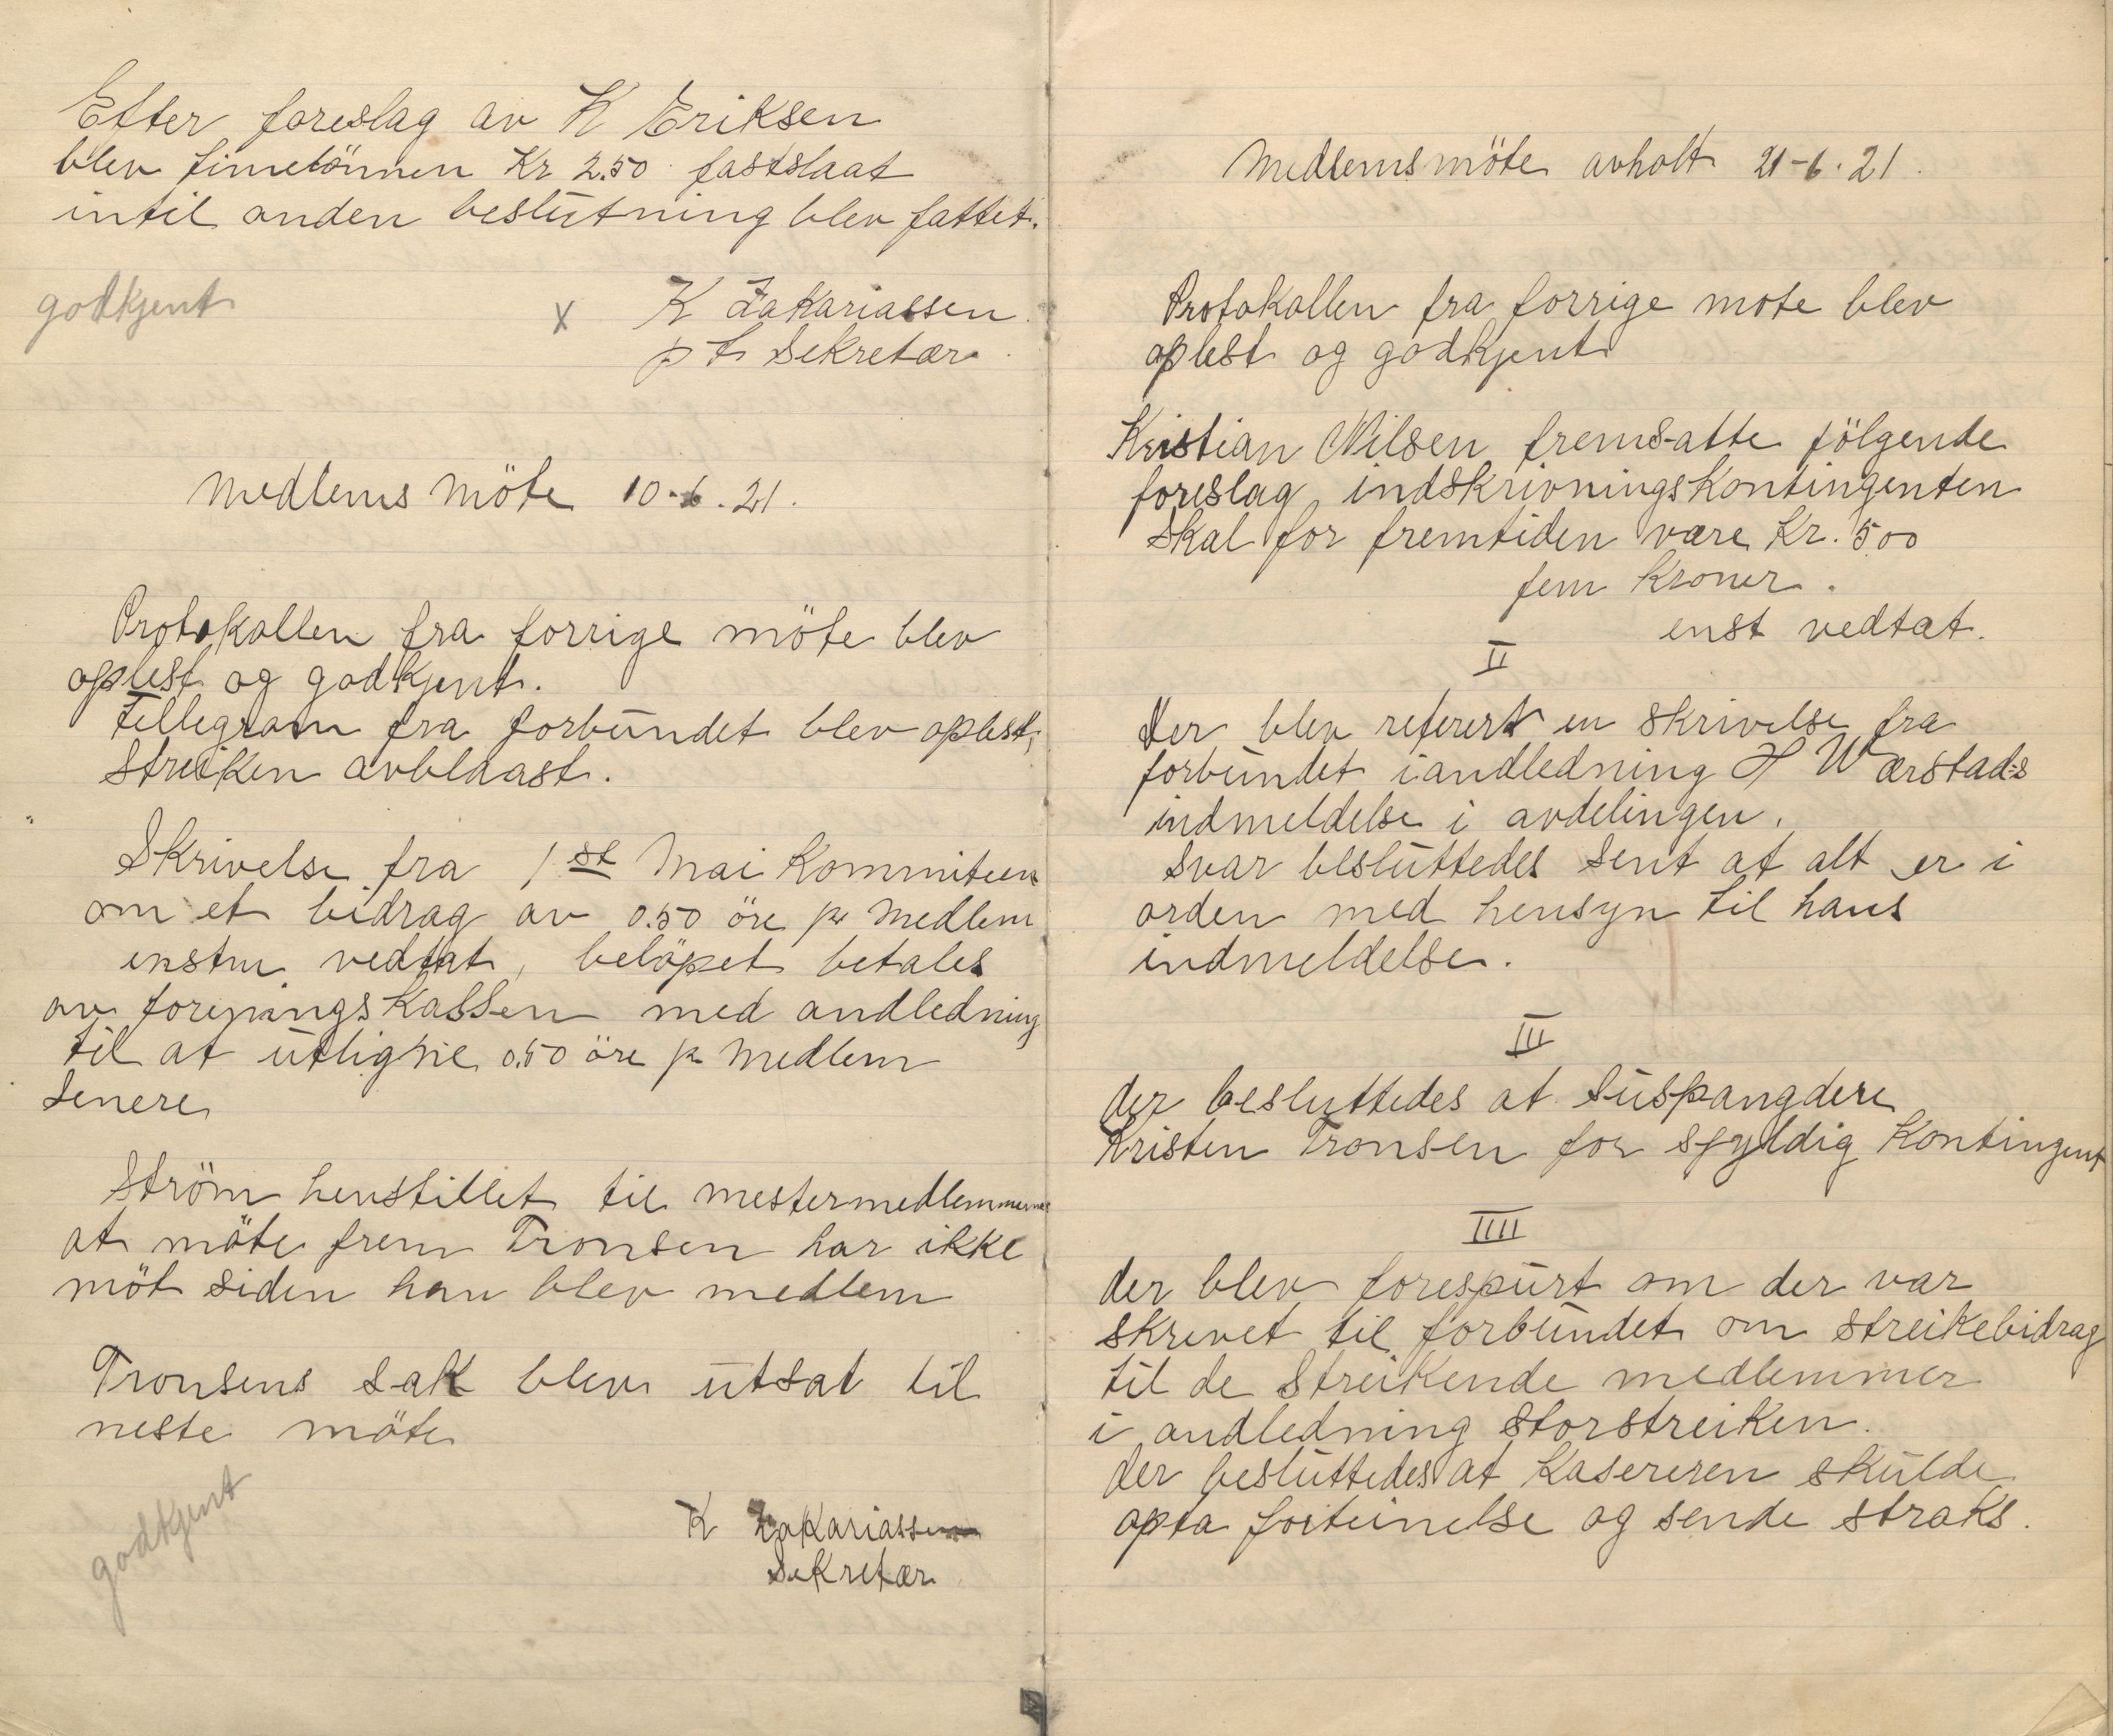 Efter foreslag av K Eriksen
blev timelönnen Kr 2.50 fastslaat
intil anden beslutning blev fattet.
godkjent x K Zakariassen
p t Sekretær
Medlems Möte 10-6.21.
Protokollen fra forrige möte blev
oplest og godkjent.
Tellegram fra forbundet blev oplest,
streiken avblaast.
Skrivelse fra 1st Mai Kommiteen
om et bidrag av 0.50 öre pr Medlem
enstm vedtat, belöpet betales
av foreningskassen med andledning
til at utligne 0.50 öre pr Medlem
senere
Ström henstillet til mestermedlemmerne
at möte frem Tronsen har ikke
möt siden han blev medlem
Tronsens sak blev utsat til
neste möte
godkjent
K Zakariassen
Sekretær
Medlemsmöte avholt 21-6.21.
Protokollen fra forrige mote blev
oplest og godkjent
Kristian Nilsen fremsatte fölgende
foreslag, indskrivningskontingenten
skal for fremtiden være Kr. 5.00
fem Kroner.
enst vedtat.
II
Der blev referert en skrivelse fra
forbundet iandledning H Wærstad's
indmeldelse i avdelingen.
Svar besluttedes sent at alt er i
orden med hensyn til hans
indmeldelse.
III
der besluttedes at suspangdere
Kristen Tronsen for skyldig Kontingent
IIII
der blev forespurt om der var
skrevet til forbundet om streikebidrag
til de streikende medlemmer
i andledning storstreiken.
der besluttedes at Kasereren skulde
opta forteinelse og sende straks.